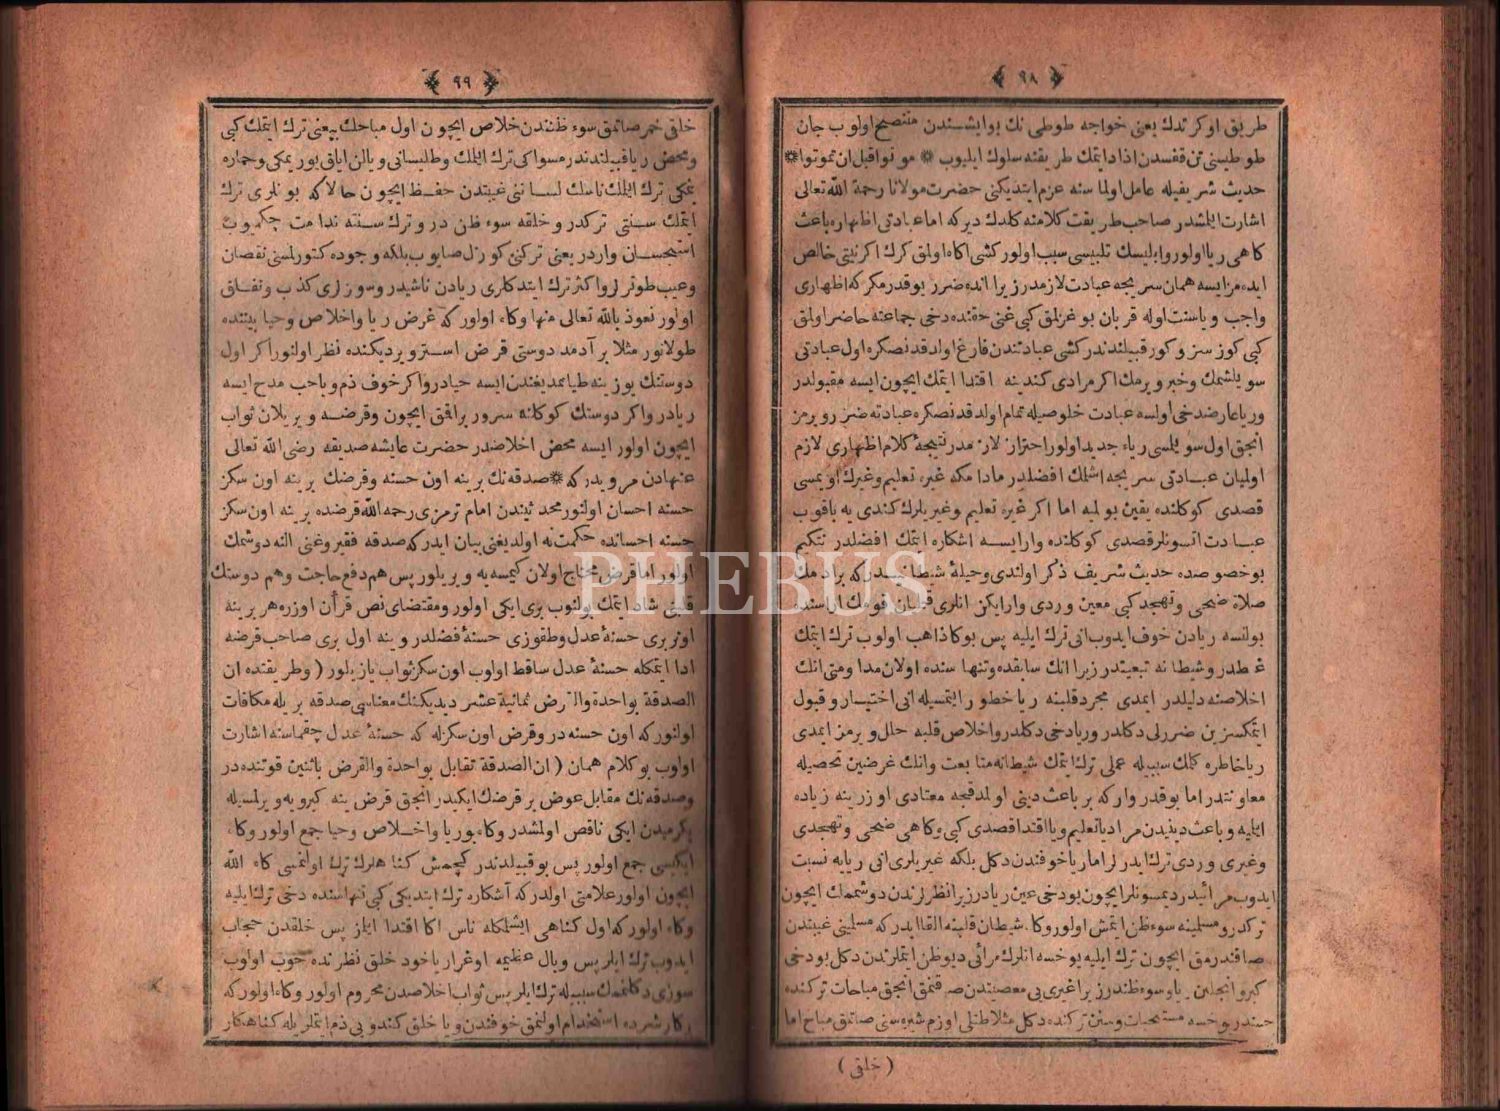 ﴿ ٩٨ ﴾
طريق اوكرتدك يعنى خواجه طوطى نك بو ايشندن متنصح اولوب جان
طوطيسنى تن قفسدن ازاد ايتمك طريقنه سلوك ايليوب * موتوا قبل ان تموتوا *
حديث شريفيله عامل اولماسنه عزم ايتديكنى حضرت مولانا رحمة الله تعالى
اشارت ايلمشدر صاحب طريقت كلامنه كلدك ديركه اما عبادتى اظهاره باعث
كاهى ريا اولور وابليسك تلبيسى سبب اولور كشى اكاه اولمق كرك اكر نيتى خالص
ايده مز ايسه همان سريجه عبادت لازمدر زيرا انده ضرر يوقدر مكر كه اظهارى
واجب ويا سنت اوله قربان بوغزلمق كبى غنى حقنده دخى جماعته حاضر اولمق
كبى كوز سز وكور قبيلندندر كشى عبادتندن فارغ اولدقدنصكره اول عبادتى
سويلشمك وخبر ويرمك اكر مرادى كندينه اقتدا ايتمك ايچون ايسه مقبولدر
وريا عارضدخى اولسه عبادت خلوصيله تمام اولدقدنصكره عبادته ضرر ويرمز
انجق اول سويلمسى رياء جديد اولور احتراز لازمدر نتيجهٔ كلام اظهارى لازم
اوليان عبادتى سريجه اشلمك افضلدر مادامكه غيره تعليم وغيرك اويمسى
قصدى كوكلنده يقين بولميه اما اكر غيره تعليم وغيريلرك كندى يه باقوب
عبادت اتسونلر قصدى كوكلنده وار ايسه اشكاره ايتمك افضلدر نتكيم
بوخصوصده حديث شريف ذكر اولندى وحيلهٔ شيطانيدر كه بر ادمك
صلاة ضحى وتهجد كبى معين وردى وار ايكن انلرى قيلمان قومك اراسنده
بولنسه ريادن خوف ايدوب انى ترك ايليه پس بوكا ذاهب اولوب ترك ايتمك
غلطدر وشيطانه تبعيتدر زيرا انك سابقده وتنهاسنده اولان مداومتى انك
اخلاصنه دليلدر ايمدى مجرد قلبنه ريا خطور ايتمسيله انى اختيار وقبول
ايتمكسزين ضررلى دكلدر وريا دخى دكلدر واخلاص قلبه خلل ويرمز ايمدى
ريا خاطره كلمك سببيله عملى ترك ايتمك شيطانه متابعت وانك غرضين تحصيله
معاونتدر اما يوقدر واركه بر باعث دينى اولمدقجه معتادى اوزرينه زياده
ايتميه وباعث دينيدن مراد يا تعليم ويا اقتدا قصدى كبى وكاهى ضحى وتهجدى
وغيرى وردى ترك ايدرلر اما ريا خوفندن دكل بلكه غيريلرى انى ريايه نسبت
ايدوب مرائيدر ديمسونلر ايچون بودخى عين ريادر زيرا نظرلرندن دوشمه‌مك ايچون
تركدر ومسلمينه سوء ظن ايتمش اولور وكاه شيطان قلبنه القا ايدر كه مسلمينى غيبتدن
صاقندرمق ايچون ترك ايليه بوخسه انلرك مرائى ديو ظن ايتملرندن دكل بودخى
كبر وانجلين ريا وسوء ظندر زيرا غيرى بى معصيتدن صاقنمق انجق مباحات تركنده
حسندر يوخسه مستحبات وسنن تركنده دكل مثلا طتلى اوزم شيره سنى صاتمق مباح اما
( خلقى )
﴿ ٩٩ ﴾
خلقى خمر صاتمق سوء ظنندن خلاص ايچون اول مباحك بيعنى ترك ايتمك كبى
ومحض ريا قبيلندندر مسواكى ترك ايلمك وطليسانى ويالن اياق يوريمكى وحماره
بنمكى ترك ايلمك ناسك لسانى غيبتدن حفظ ايچون حالا كه بونلرى ترك
ايتمك سنتى تركدر وخلقه سوء ظن در وترك سنته ندامت چكميوب
استحسان واردر يعنى تركنى كوزل صايوب بلكه وجوده كتورلمسنى نقصان
وعيب طوتر لر واكثر ترك ايتدكلرى ريادن ناشيدر وسوزلرى كذب ونفاق
اولور نعوذ بالله تعالى منها وكاه اولور كه غرض ريا واخلاص وحيا بيننده
طولانور مثلا بر آدمه دوستى قرض استر ويرديكنده نظر اولنور اكر اول
دوستنك يوزينه طيانمديغندن ايسه حيادر واكر خوف ذم ويا حب مدح ايسه
ريادر واكر دوستك كوكلنه سرور براقمق ايچون وقرضه ويريلان ثواب
ايچون اولور ايسه محض اخلاصدر حضرت عايشه صديقه رضى الله تعالى
عنهادن مرويدر كه * صدقه نك برينه اون حسنه وقرضك برينه اون سكز
حسنه احسان اولنور محدثيندن امام ترمزى رحمه الله قرضده برينه اون سكز
حسنه احسانده حكمت نه اولديغنى بيان ايدر كه صدقه فقير وغنى النه دوشمك
اولور اما قرض محتاج اولان كيمسه يه ويريلور پس هم دفع حاجت وهم دوستك
قلبنى شاد ايتمك بولنوب برى ايكى اولور ومقتضاى نص قرآن اوزره هر برينه
اونر برى حسنهٔ عدل وطقوزى حسنهٔ فضلدر وينه اول برى صاحب قرضه
ادا ايتمكله حسنهٔ عدل ساقط اولوب اون سكز ثواب يازيلور ( وطريقنده ان
الصدقة بواحدة والقرض ثمانية عشر ديديكنك معناسى صدقه بريله مكافات
اولنور كه اون حسنه در وقرض اون سكزله كه حسنهٔ عدل چقماسنه اشارت
اولوب بو كلام همان ( ان الصدقة تقابل بواحدة والقرض باثنين قوتنده در
وصدقه نك مقابل عوض بر قرضك ايكيدر انجق قرض ينه كيرويه ويرلمسيله
يكرميدن ايكى ناقص اولمشدر وكاه بو ريا واخلاص وحيا جمع اولور وكاه
ايكيسى جمع اولور پس بو قبيلدندر كچمش كناهلرك ترك اولنمسى كاه الله
ايچون اولور علامتى اولدر كه آشكاره ترك ايتديكى كبى تنهاسنده دخى ترك ايليه
وكاه اولور كه اول كناهى ايشلمكله ناس اكا اقتدا ايلر پس خلقدن حجاب
ايدوب ترك ايلر پس وبال عظيمه اوغرار ياخود خلق نظرنده خوب اولوب
سوزى دكلنمك سببيله ترك ايلر پس ثواب اخلاصدن محروم اولور وكاه اولور كه
ركارشرده استخدام اولنمق خوفندن ويا خلق كندويى ذم ايتملريله كناهكار